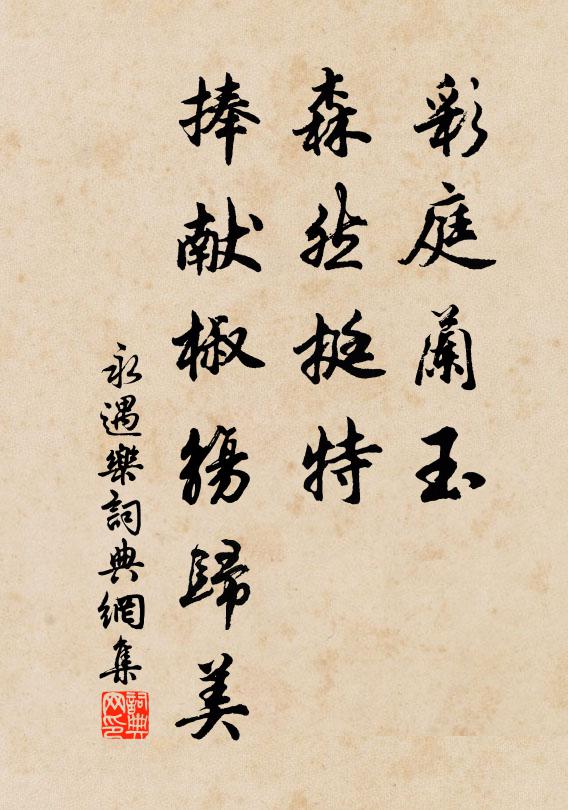 彩庭蘭玉
森然挺特
捧献椒觴歸美
永遇樂詞典網集
詞典网印